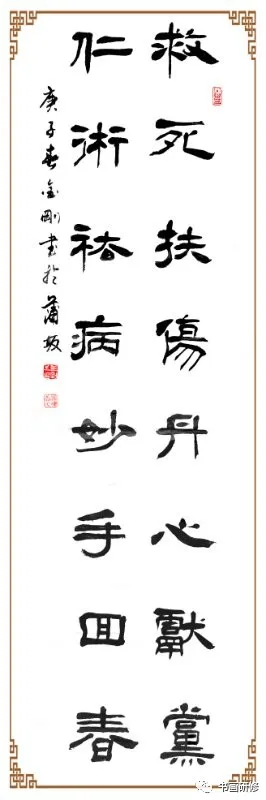 救死扶傷丹心獻黨
仁術祛病妙手回春
庚子春金剛書於蒲坂
书画研修